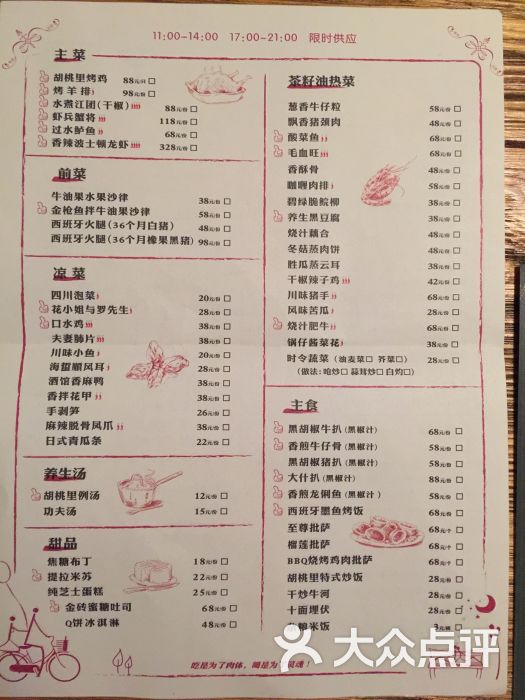 11:00-14:00 17:00-21:00 限时供应
主菜
胡桃里烤鸡 88元/只
烤羊排 98元/份
水煮江团(干椒) 88元/份
虾兵蟹将 118元/份
过水鲈鱼 68元/份
香辣波士顿龙虾 328元/份
前菜
牛油果水果沙律 38元/份
金枪鱼拌牛油果沙律 58元/份
西班牙火腿(36个月白猪) 48元/份
西班牙火腿(36个月橡果黑猪) 98元/份
凉菜
四川泡菜 20元/份
花小姐与罗先生 28元/份
口水鸡 38元/份
夫妻肺片 38元/份
川味小鱼 20元/份
海蜇顺风耳 28元/份
酒馆香麻鸭 38元/份
香拌花甲 38元/份
手剥笋 26元/份
麻辣脱骨凤爪 38元/份
日式青瓜条 22元/份
养生汤
胡桃里例汤 12元/份
功夫汤 15元/份
甜品
焦糖布丁 18元/份
提拉米苏 22元/份
纯芝士蛋糕 25元/份
金砖蜜糖吐司 68元/份
Q饼冰淇淋 48元/份
茶籽油热菜
葱香牛仔粒 58元/份
飘香猪颈肉 48元/份
酸菜鱼 68元/份
毛血旺 68元/份
香酥骨 48元/份
咖喱肉排 58元/份
碧绿脆鲩柳 38元/份
养生黑豆腐 38元/份
烧汁藕合 48元/份
冬菇蒸肉饼 48元/份
胜瓜蒸云耳 38元/份
干椒辣子鸡 42元/份
川味猪手 68元/份
风味苦瓜 28元/份
烧汁肥牛 68元/份
锅仔酱菜花 38元/份
时令蔬菜(油麦菜 芥菜) 28元/份
(做法:呛炒 蒜茸炒 白灼)
主食
黑胡椒牛扒(黑椒汁) 68元/份
香煎牛仔骨(黑椒汁) 58元/份
黑胡椒猪扒(黑椒汁) 58元/份
大什扒(黑椒汁) 88元/份
香煎龙俐鱼(黑椒汁) 58元/份
西班牙墨鱼烤饭 68元/份
至尊批萨 68元/个
榴莲批萨 68元/个
BBQ烧烤鸡肉批萨 68元/个
胡桃里特式炒饭 28元/份
干炒牛河 28元/份
十面埋伏 28元/份
粮米饭 3元/碗
吃是为了肉体,喝是为了灵魂!
大众点评